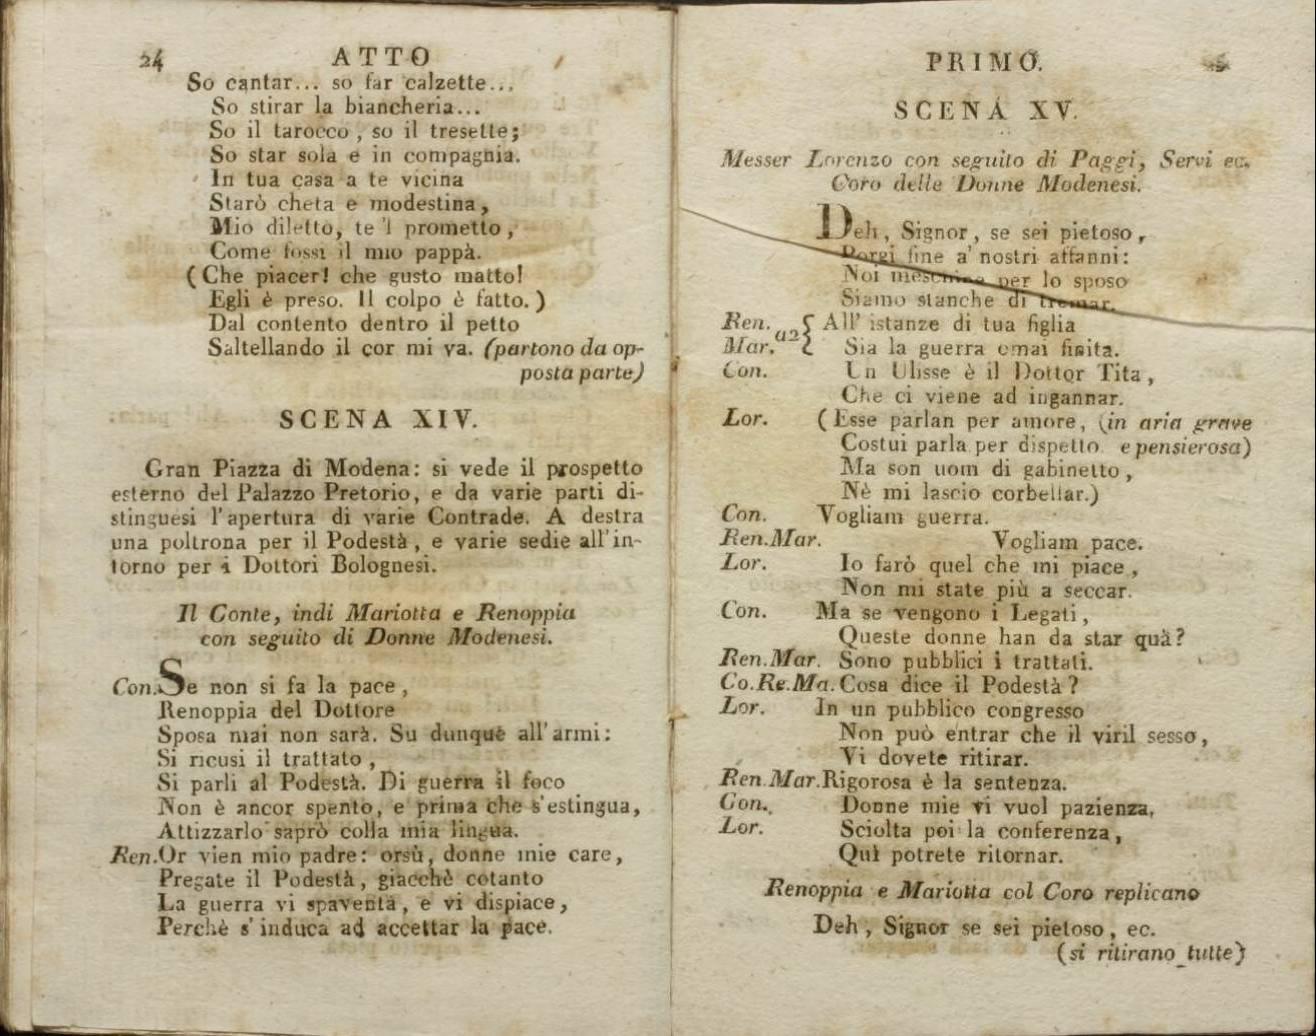 24 ATTO
So cantar... so far calzette...
So stirar la biancheria...
So il tarocco, so il tresette;
So star sola e in compagnia.
In tua casa a te vicina
Starò cheta e modestina,
Mio diletto, te 'l prometto,
Come fossi il mio pappà.
(Che piacer! che gusto matto!
Egli è preso. Il colpo è fatto.)
Dal contento dentro il petto
Saltellando il cor mi va. (partono da op-
posta parte)
SCENA XIV.
Gran Piazza di Modena: si vede il prospetto
esterno del Palazzo Pretorio, e da varie parti di-
stinguesi l'apertura di varie Contrade. A destra
una poltrona per il Podestà, e varie sedie all'in-
torno per i Dottori Bolognesi.
Il Conte, indi Mariotta e Renoppia
con seguito di Donne Modenesi.
Con. Se non si fa la pace,
Renoppia del Dottore
Sposa mai non sarà. Su dunque all'armi:
Si ricusi il trattato,
Si parli al Podestà. Di guerra il foco
Non è ancor spento, e prima che s'estingua,
Attizzarlo saprò colla mia lingua.
Ren. Or vien mio padre: orsù, donne mie care,
Pregate il Podestà, giacchè cotanto
La guerra vi spaventa, e vi dispiace,
Perchè s'induca ad accettar la pace.
PRIMO.
SCENA XV.
Messer Lorenzo con seguito di Paggi, Servi ec.
Coro delle Donne Modenesi.
Deh, Signor, se sei pietoso,
Porgi fine a' nostri affanni:
Noi meschine per lo sposo
Siamo stanche di tremar.
Ren. a2 { All' istanze di tua figlia
Mar. Sia la guerra omai finita.
Con. Un Ulisse è il Dottor Tita,
Che ci viene ad ingannar.
Lor. (Esse parlan per amore, (in aria grave
Costui parla per dispetto. e pensierosa)
Ma son uom di gabinetto,
Nè mi lascio corbellar.)
Con. Vogliam guerra.
Ren. Mar. Vogliam pace.
Lor. Io farò quel che mi piace,
Non mi state più a seccar.
Con. Ma se vengono i Legati,
Queste donne han da star quà?
Ren. Mar. Sono pubblici i trattati.
Co. Re. Ma. Cosa dice il Podestà?
Lor. In un pubblico congresso
Non può entrar che il viril sesso,
Vi dovete ritirar.
Ren. Mar. Rigorosa è la sentenza.
Con. Donne mie vi vuol pazienza,
Lor. Sciolta poi la conferenza,
Quì potrete ritornar.
Renoppia e Mariotta col Coro replicano
Deh, Signor se sei pietoso, ec.
(si ritirano tutte)